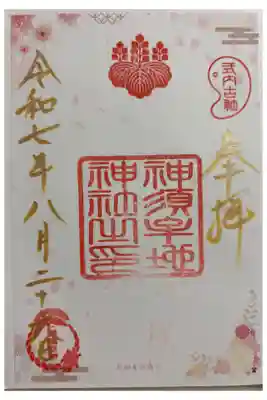 式内古社
奉拝
神須牟地
神社之印
令和七年八月二十日